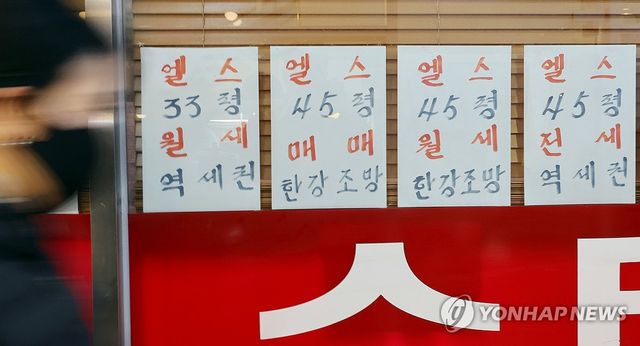 엘스
33평
월세
역세권
엘스
45평
매매
한강조망
엘스
45평
월세
한강조망
엘스
45평
전세
역세권
스
YONHAP NEWS